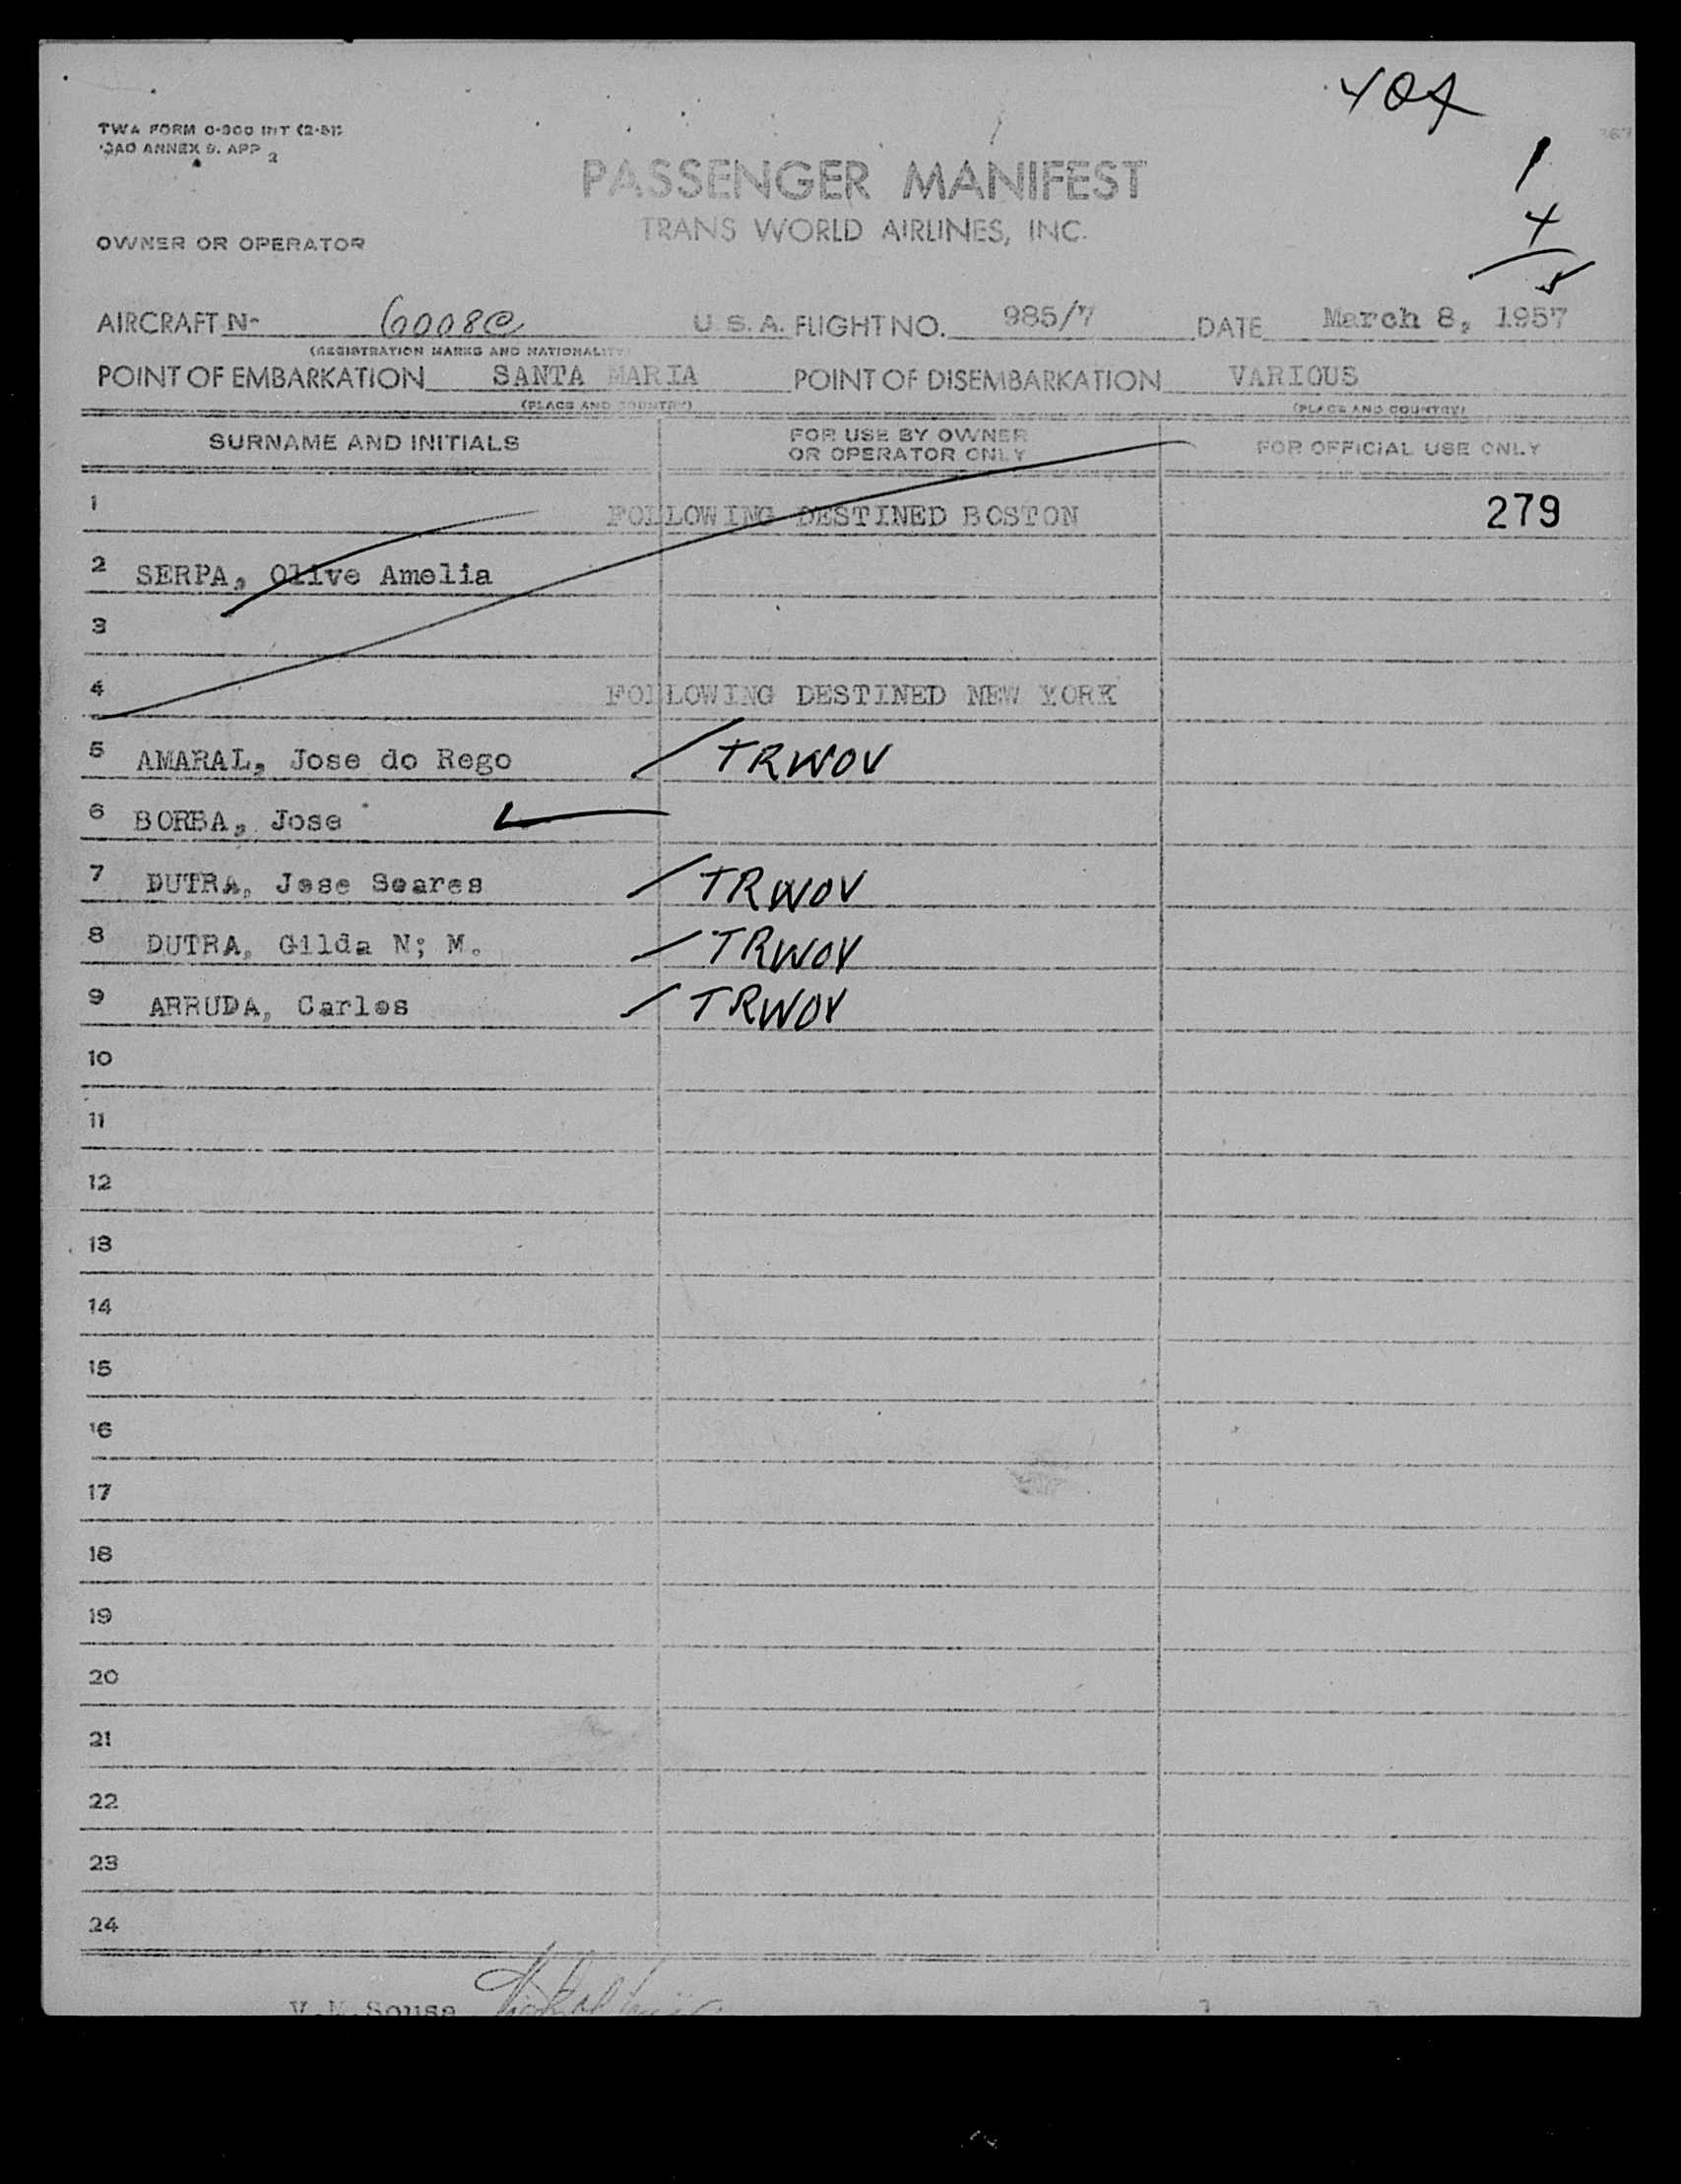 404
TWA FORM 0-300 INT (2-51)
ICAO ANNEX 9. APP 2
PASSENGER MANIFEST
TRANS WORLD AIRLINES, INC.
1
4
5
OWNER OR OPERATOR
AIRCRAFT N- 6008C U.S.A. FLIGHT NO. 985/7 DATE March 8, 1957
(REGISTRATION MARKS AND NATIONALITY)
POINT OF EMBARKATION SANTA MARIA POINT OF DISEMBARKATION VARIOUS
(PLACE AND COUNTRY) (PLACE AND COUNTRY)
SURNAME AND INITIALS FOR USE BY OWNER OR OPERATOR ONLY FOR OFFICIAL USE ONLY
1 FOLLOWING DESTINED BOSTON 279
2 SERPA, Olive Amelia
3
4 FOLLOWING DESTINED NEW YORK
5 AMARAL, Jose do Rego / TRWOV
6 BORBA, Jose
7 DUTRA, Jose Soares / TRWOV
8 DUTRA, Gilda N; M. / TRWOV
9 ARRUDA, Carlos / TRWOV
10
11
12
13
14
15
16
17
18
19
20
21
22
23
24
V.M.Sousa